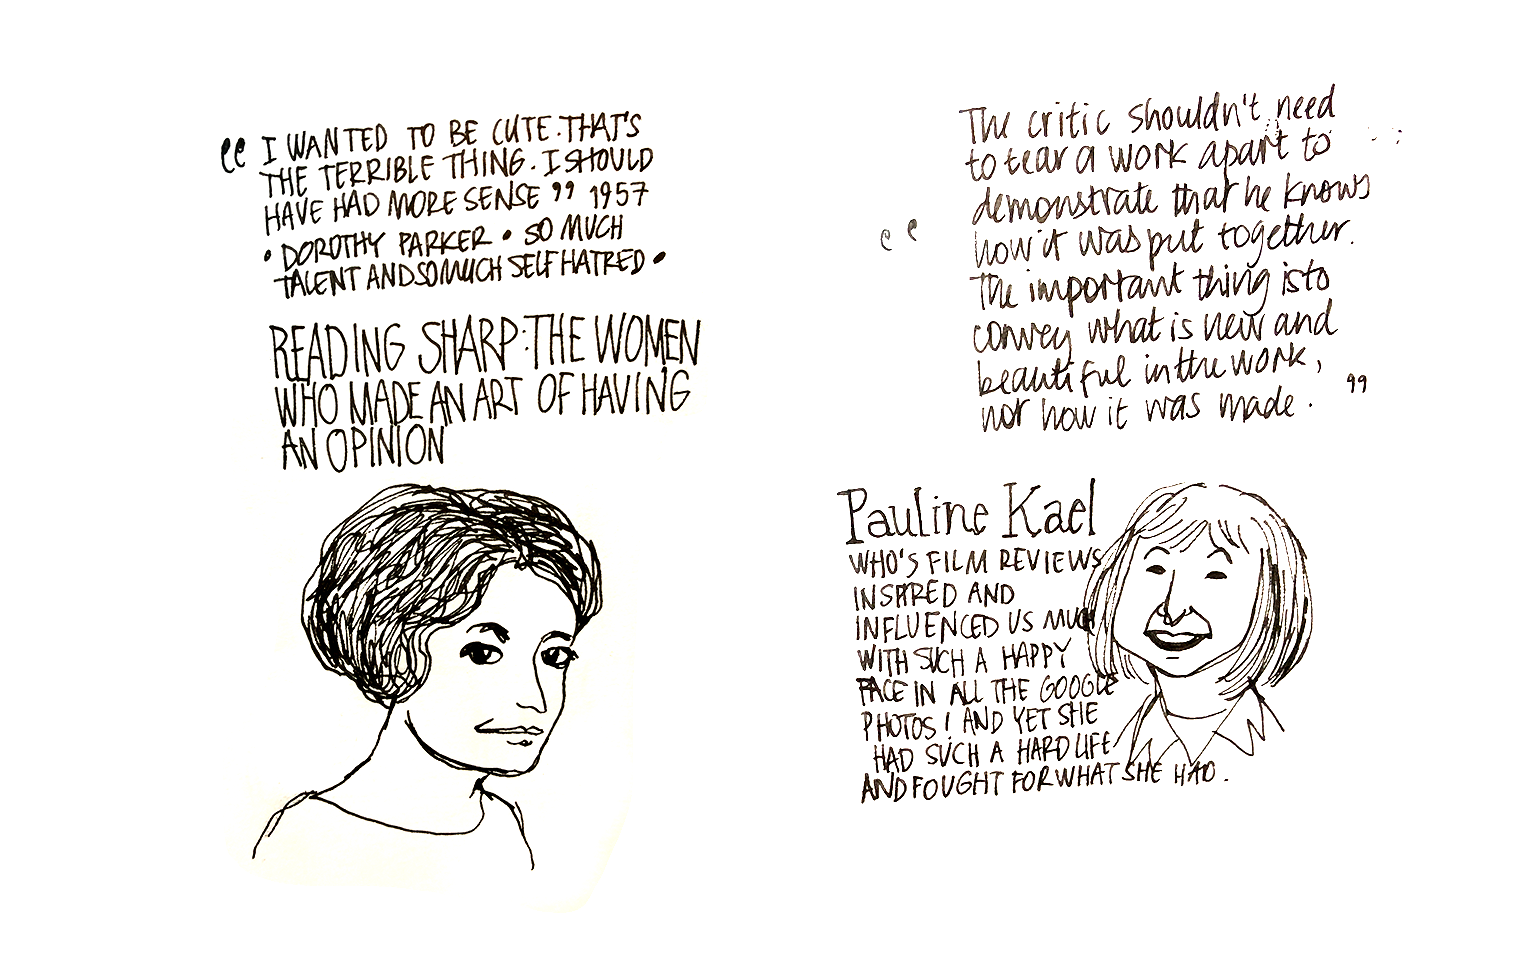 “ I WANTED TO BE CUTE. THAT'S
THE TERRIBLE THING. I SHOULD
HAVE HAD MORE SENSE ” 1957
• DOROTHY PARKER • SO MUCH
TALENT AND SO MUCH SELF HATRED •
READING SHARP: THE WOMEN
WHO MADE AN ART OF HAVING
AN OPINION
“ The critic shouldn't need
to tear a work apart to
demonstrate that he knows
how it was put together.
The important thing is to
convey what is new and
beautiful in the work,
not how it was made. ”
Pauline Kael
WHO'S FILM REVIEWS
INSPIRED AND
INFLUENCED US MUCH
WITH SUCH A HAPPY
FACE IN ALL THE GOOGLE
PHOTOS! AND YET SHE
HAD SUCH A HARD LIFE
AND FOUGHT FOR WHAT SHE HAD.